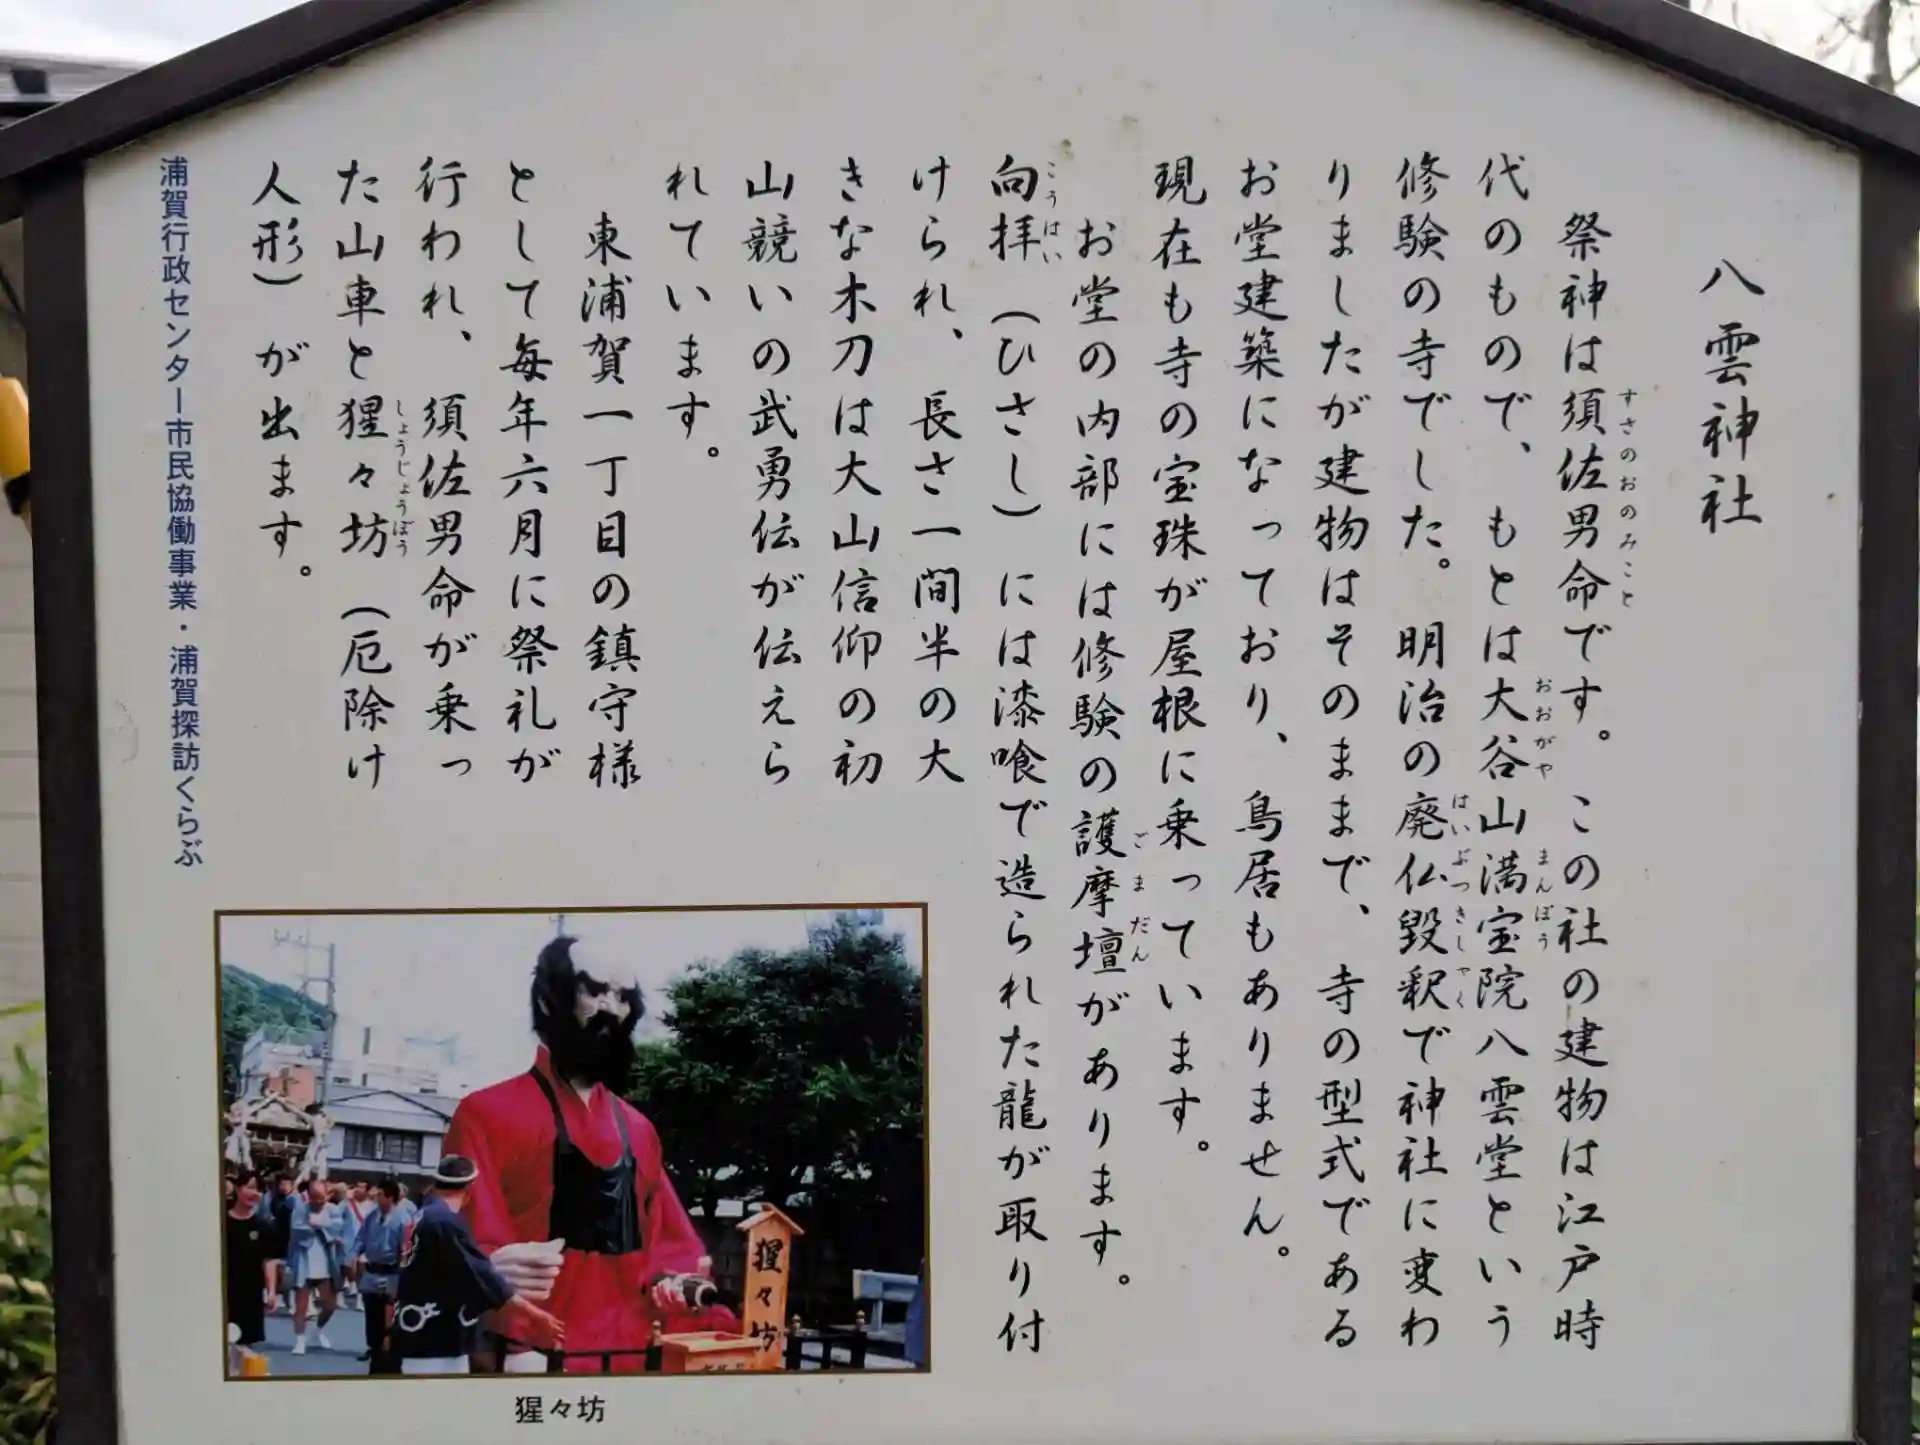 八雲神社
祭神は須佐男命です。この社の建物は江戸時
すさのおのみこと
代のもので、もとは大谷山満宝院八雲堂という
おおがや まんぽう
修験の寺でした。明治の廃仏毀釈で神社に変わ
はいぶつきしゃく
りましたが建物はそのままで、寺の型式である
お堂建築になっており、鳥居もありません。
現在も寺の宝珠が屋根に乗っています。
お堂の内部には修験の護摩壇があります。
ごまだん
向拝(ひさし)には漆喰で造られた龍が取り付
こうはい
けられ、長さ一間半の大
きな木刀は大山信仰の初
山競いの武勇伝が伝えら
れています。
東浦賀一丁目の鎮守様
として毎年六月に祭礼が
行われ、須佐男命が乗っ
た山車と猩々坊(厄除け
しょうじょうぼう
人形)が出ます。
浦賀行政センター市民協働事業・浦賀探訪くらぶ
猩々坊
猩々坊